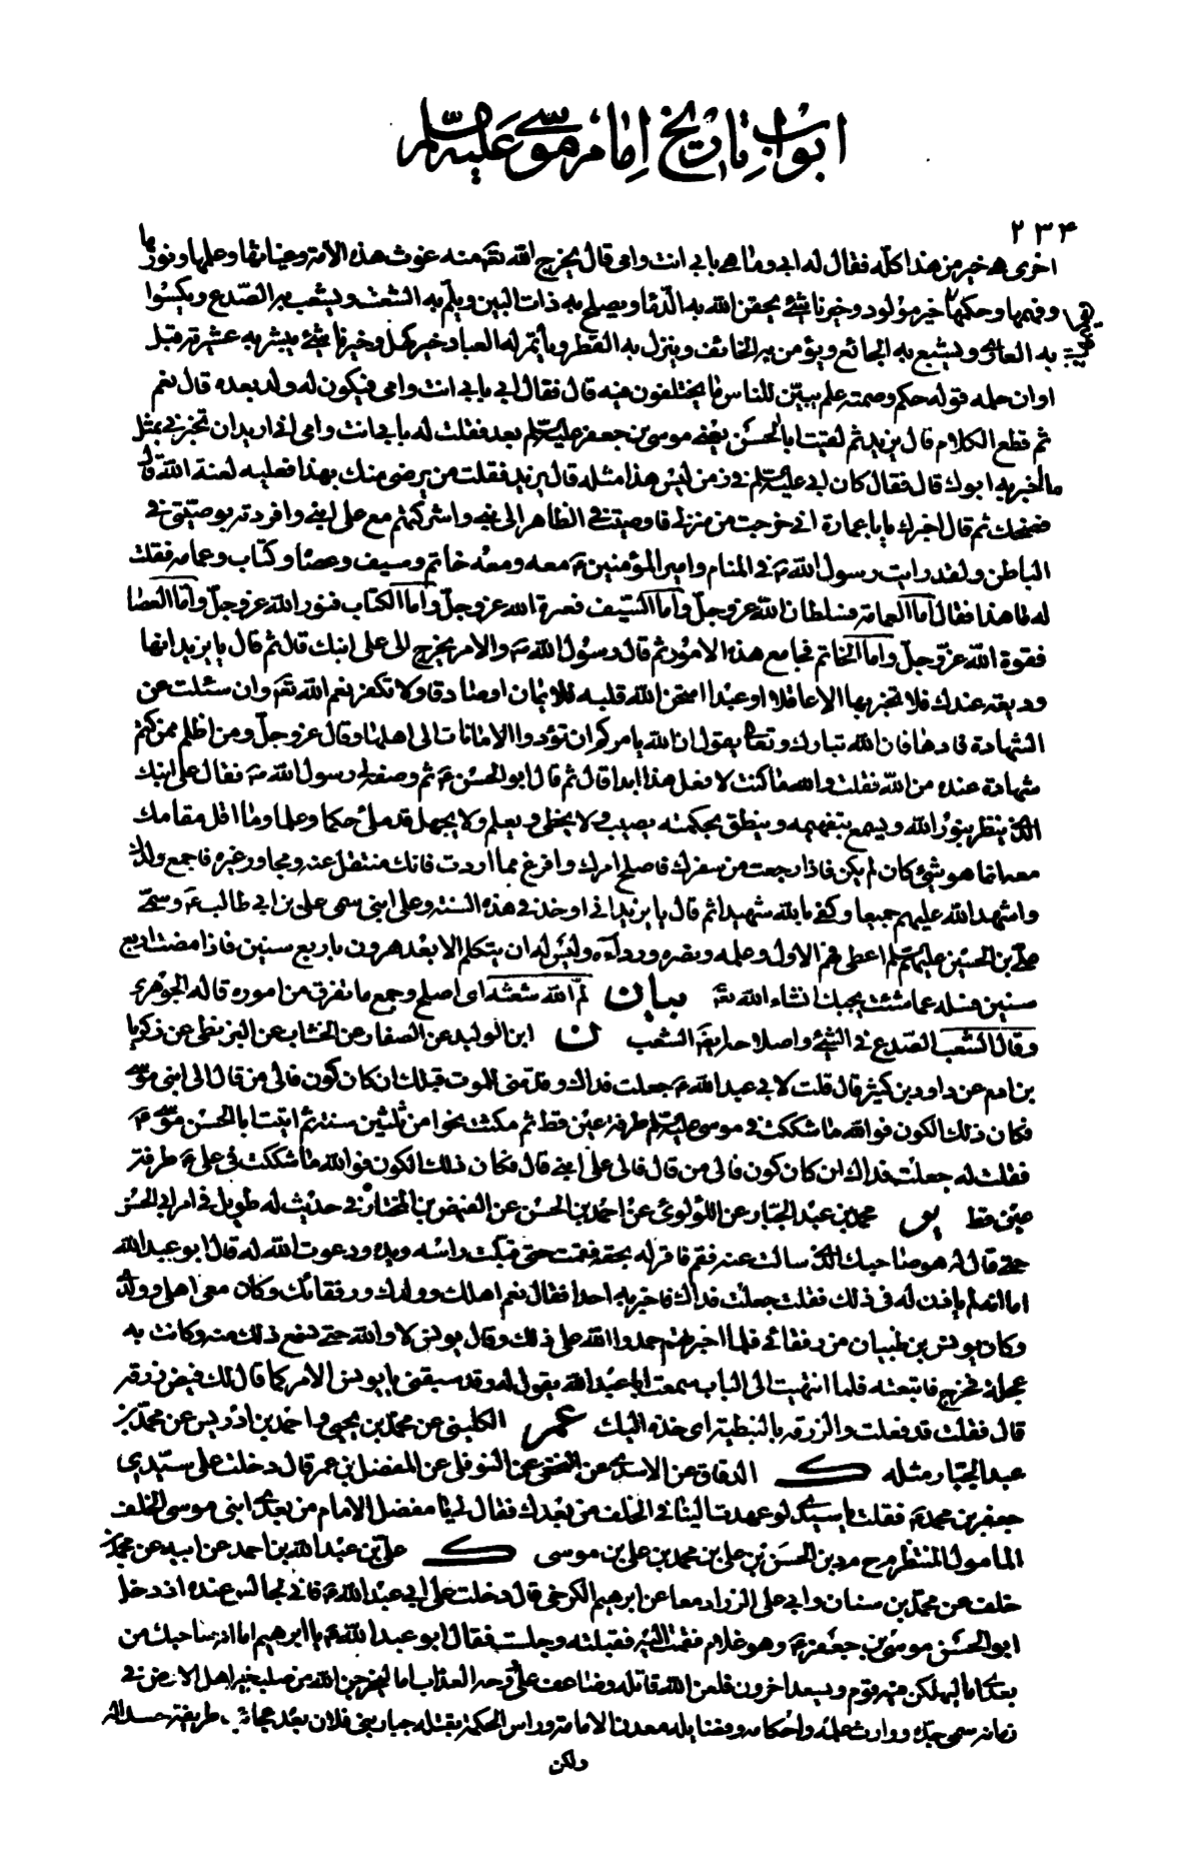 ابواب تاريخ امام موسى عليه السلم
٢٣٤
اخرى هى خير من هذا كله فقال له ابى وما هى بابى انت وامى قال يخرج الله تعـ منه غوث هذه الامة وغياثها وعلمها ونورها
وفهمها وحكمها خير مولود وخير ناشئ يحقن الله به الدماء ويصلح به ذات البين ويلم به الشعث ويشعب به الصدع ويكسوا
به العارى ويشبع به الجائع ويؤمن به الخائف وينزل به القطر ويأتمر له العباد خير كهل وخير ناشئ يبشر به عشيرته قبل
اوان حلمه قوله حكم وصمته علم يبين للناس ما يختلفون فيه قال فقال ابى بابى انت وامى فيكون له ولد بعده قال نعم
ثم قطع الكلام قال يزيد ثم لقيت ابا الحسن يعنى موسى بن جعفر عليه السلم بعد فقلت له بابى انت وامى انى اريد ان تخبرنى بمثل
ما اخبر به ابوك قال فقال كان ابى عليه السلم فى زمن ليس هذا مثله قال يزيد فقلت من يرضى منك بهذا فعليه لعنة الله قال
فضحك ثم قال اخبرك يا با عمارة انى خرجت من منزلى فاوصيت فى الظاهر الى بنى واشركتهم مع على ابنى وافردته بوصيتى فى
الباطن ولقد رايت رسول الله ص فى المنام وامير المؤمنين ع معه ومعه خاتم وسيف وعصا وكتاب وعمامة فقلت
له ما هذا فقال اما العمامة فسلطان الله عز وجل واما السيف فعزة الله عز وجل واما الكتاب فنور الله عز وجل واما العصا
فقوة الله عز وجل واما الخاتم فجامع هذه الامور ثم قال رسول الله ص والامر يخرج الى على ابنك قال ثم قال يا يزيد انها
وديعة عندك فلا تخبر بها الا عاقلا او عبدا امتحن الله قلبه للايمان او صادقا ولا تكفر نعم الله تعـ وان سئلت عن
الشهادة فادها فان الله تبارك وتعالى يقول ان الله يامركم ان تؤدوا الامانات الى اهلها وقال عز وجل ومن اظلم ممن كتم
شهادة عنده من الله فقلت والله ما كنت لافعل هذا ابدا قال ثم قال ابو الحسن ع ثم وصفه لى رسول الله ص فقال على ابنك
الذى ينظر بنور الله ويسمع بتفهيمه وينطق بحكمته يصيب ولا يخطى ويعلم ولا يجهل قد ملئ حكما وعلما وما اقل مقامك
معه انما هو شئ كان لم يكن فاذا رجعت من سفرك فاصلح امرك وافرغ مما اردت فانك منتقل عنه ومجاور غيره فاجمع ولدك
واشهد الله عليهم جميعا وكفى بالله شهيدا ثم قال يا يزيد انى اوخذ فى هذه السنة وعلى ابنى سمى على بن ابى طالب ع وسمى
على بن الحسين عليهم السلم اعطى فهم الاول وعلمه وبصره ورداءه وليس له ان يتكلم الا بعد هرون باربع سنين فاذا مضت اربع
سنين فسله عما شئت يجبك انشاء الله تعـ بيان لم الله شعثه اى اصلح وجمع ما تفرق من اموره قاله الجوهرى
وقال الشعب الصدع فى الشئ واصلاحه ايضا الشعب ن ابن الوليد عن الصفار عن الخشاب عن البزنطى عن زكريا
بن ادم عن داود بن كثير قال قلت لابى عبد الله ع جعلت فداك وقدمنى للموت قبلك ان كان كون فالى من قال الى ابنى موسى
فكان ذلك الكون فوالله ما شككت فى موسى عليه السلم طرفة عين قط ثم مكثت نحوا من ثلثين سنة ثم اتيت ابا الحسن موسى ع
فقلت له جعلت فداك ان كان كون فالى من قال فالى على ابنى قال فكان ذلك الكون فوالله ما شككت فى على ع طرفة
عين قط ير محمد بن عبد الجبار عن اللؤلوئى عن احمد بن الحسن عن الفيض بن المختار فى حديث له طويل فى امر ابى الحسن
حتى قال له هو صاحبك الذى سالت عنه فقم فاقر له بحقه فقمت حتى قبلت راسه ويده ودعوت الله له قال ابو عبد الله
اما انه لم يؤذن له فى ذلك فقلت جعلت فداك فاخبر به احدا فقال نعم اهلك وولدك ورفقائك وكان معى اهلى وولدى
وكان يونس بن ظبيان من رفقائى فلما اخبرتهم حمدوا الله على ذلك وقال يونس لا والله حتى نسمع ذلك منه وكانت به
عجلة فخرج فاتبعته فلما انتهيت الى الباب سمعت ابا عبد الله يقول له وقد سبقنى يا يونس الامر كما قال لك فيض زرقه
قال فقلت قد فعلت والزرقه بالنبطية اى خذه اليك عم الكلينى عن محمد بن يحيى واحمد بن ادريس عن محمد بن
عبد الجبار مثله ك الدقاق عن الاسدى عن النخعى عن النوفلى عن المفضل بن عمر قال دخلت على سيدى
جعفر بن محمد ع فقلت يا سيدى لو عهدت الينا فى الخلف من بعدك فقال لى يا مفضل الامام من بعدى ابنى موسى والخلف
المامول المنتظر م ح م د بن الحسن بن على بن محمد بن على بن موسى ك على بن عبد الله بن احمد عن ابيه عن محمد بن
خلف عن محمد بن سنان وابى على الزراد معا عن ابرهيم الكرخى قال دخلت على ابى عبد الله ع فانى لجالس عنده اذ دخل
ابو الحسن موسى بن جعفر ع وهو غلام فقمت اليه فقبلته وجلست فقال ابو عبد الله ع يا ابرهيم اما انه صاحبك من
بعدى اما ليهلكن فيه قوم ويسعد اخرون فلعن الله قاتله وضاعف على روحه العذاب اما ليخرجن الله من صلبه خير اهل الارض فى
زمانه سمى جده ووارث علمه واحكامه وفضايله معدن الامامة وراس الحكمة يقتله جبار بنى فلان بعد عجائب طريفة حسدا له
ولكن